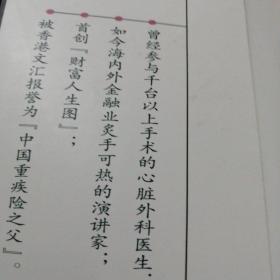 曾经参与千台以上手术的心脏外科医生；
如今海内外金融业炙手可热的演讲家；
首创『财富人生图』；
被香港文汇报誉为『中国重疾险之父』。